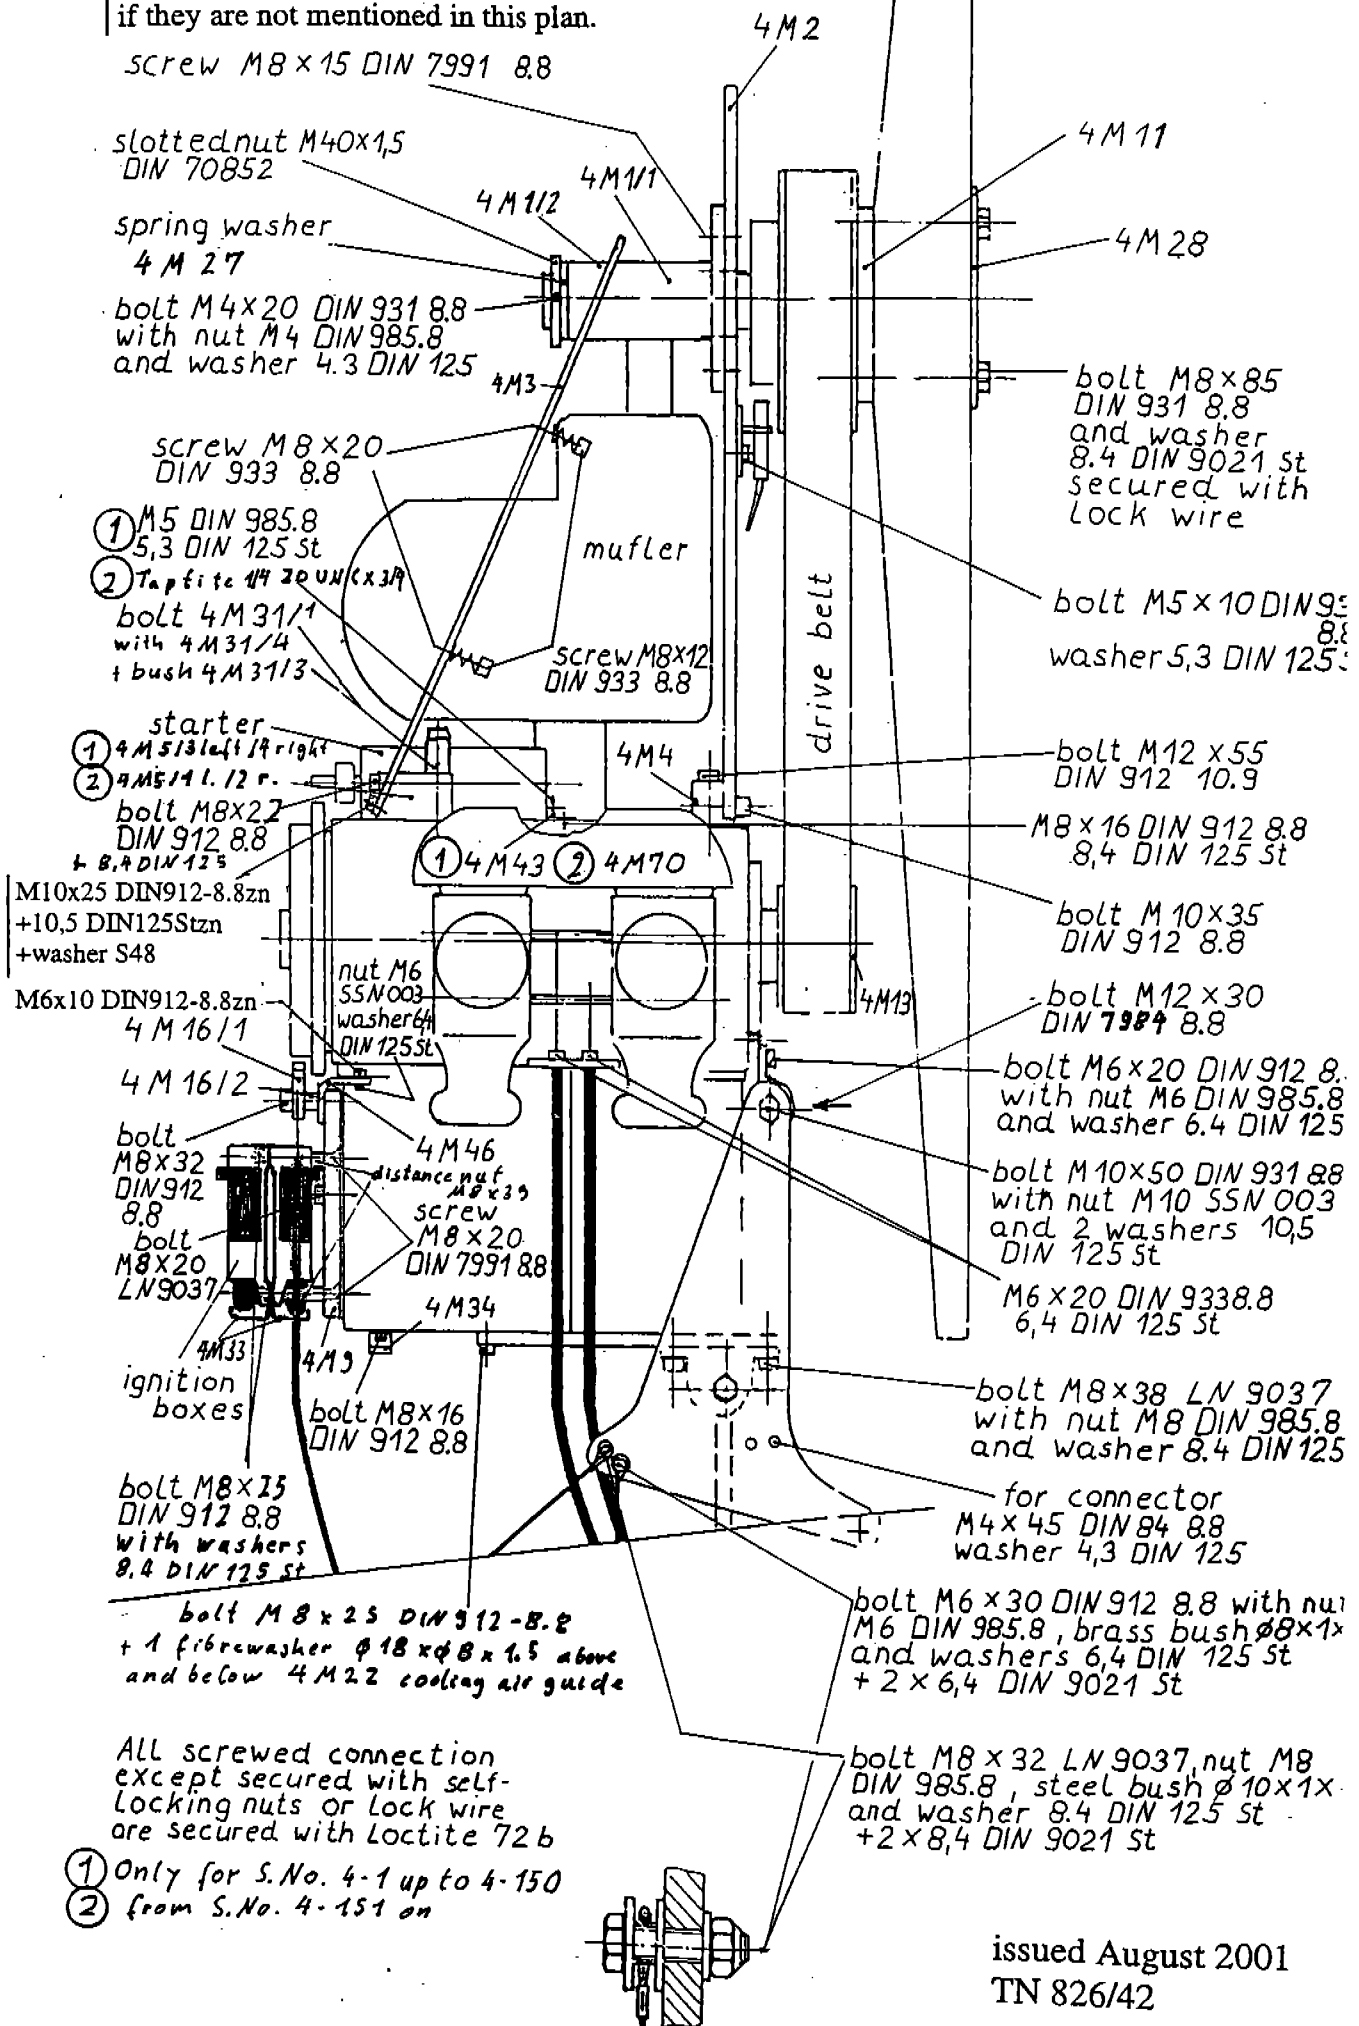 if they are not mentioned in this plan.
screw M8×15 DIN 7991 8.8
4M2
slottednut M40×1,5
DIN 70852
4M1/2
4M1/1
4M11
spring washer
4M27
4M28
bolt M4×20 DIN 931 8.8
with nut M4 DIN 985.8
and washer 4.3 DIN 125
4M3
bolt M8×85
DIN 931 8.8
and washer
8.4 DIN 9021 St
secured with
Lock wire
screw M8×20
DIN 933 8.8
① M5 DIN 985.8
5,3 DIN 125 St
② Taptite 1/4 20 UNC x 3/4
mufler
drive belt
bolt 4M31/1
with 4M31/4
+ bush 4M31/3
screw M8×12
DIN 933 8.8
bolt M5×10 DIN
8.8
washer 5,3 DIN 125
starter
① 4M5/3 left /4 right
② 4M5/1 l. /2 r.
4M4
bolt M12×55
DIN 912 10.9
bolt M8×22
DIN 912 8.8
+ 8,4 DIN 125
① 4M43 ② 4M70
M8×16 DIN 912 8.8
8,4 DIN 125 St
M10x25 DIN912-8.8zn
+10,5 DIN125Stzn
+washer S48
bolt M10×35
DIN 912 8.8
M6x10 DIN912-8.8zn
nut M6
SSN003
washer 6,4
DIN 125 St
4M13
bolt M12×30
DIN 7984 8.8
4M16/1
4M16/2
bolt M6×20 DIN 912 8.
with nut M6 DIN 985.8
and washer 6.4 DIN 125
bolt
M8×32
DIN 912
8.8
4M46
distance nut
M8x39
screw
M8×20
DIN 7991 8.8
bolt
M8×20
LN9037
bolt M10×50 DIN 931 8.8
with nut M10 SSN 003
and 2 washers 10,5
DIN 125 St
M6×20 DIN 933 8.8
6,4 DIN 125 St
4M34
4M33
4M9
ignition
boxes
bolt M8×16
DIN 912 8.8
bolt M8×38 LN 9037
with nut M8 DIN 985.8
and washer 8.4 DIN 125
for connector
M4×45 DIN 84 8.8
washer 4,3 DIN 125
bolt M8×25
DIN 912 8.8
with washers
8.4 DIN 125 St
bolt M8x25 DIN 912-8.8
+ 1 fibrewasher ϕ18xϕ8x1.5 above
and below 4M22 cooling air guide
bolt M6×30 DIN 912 8.8 with nut
M6 DIN 985.8, brass bush ϕ8×1×
and washers 6,4 DIN 125 St
+ 2×6,4 DIN 9021 St
All screwed connection
except secured with self-
Locking nuts or Lock wire
are secured with Loctite 72b
bolt M8×32 LN 9037, nut M8
DIN 985.8, steel bush ϕ10×1×
and washer 8.4 DIN 125 St
+2×8,4 DIN 9021 St
① Only for S.No. 4-1 up to 4-150
② from S.No. 4-151 on
issued August 2001
TN 826/42